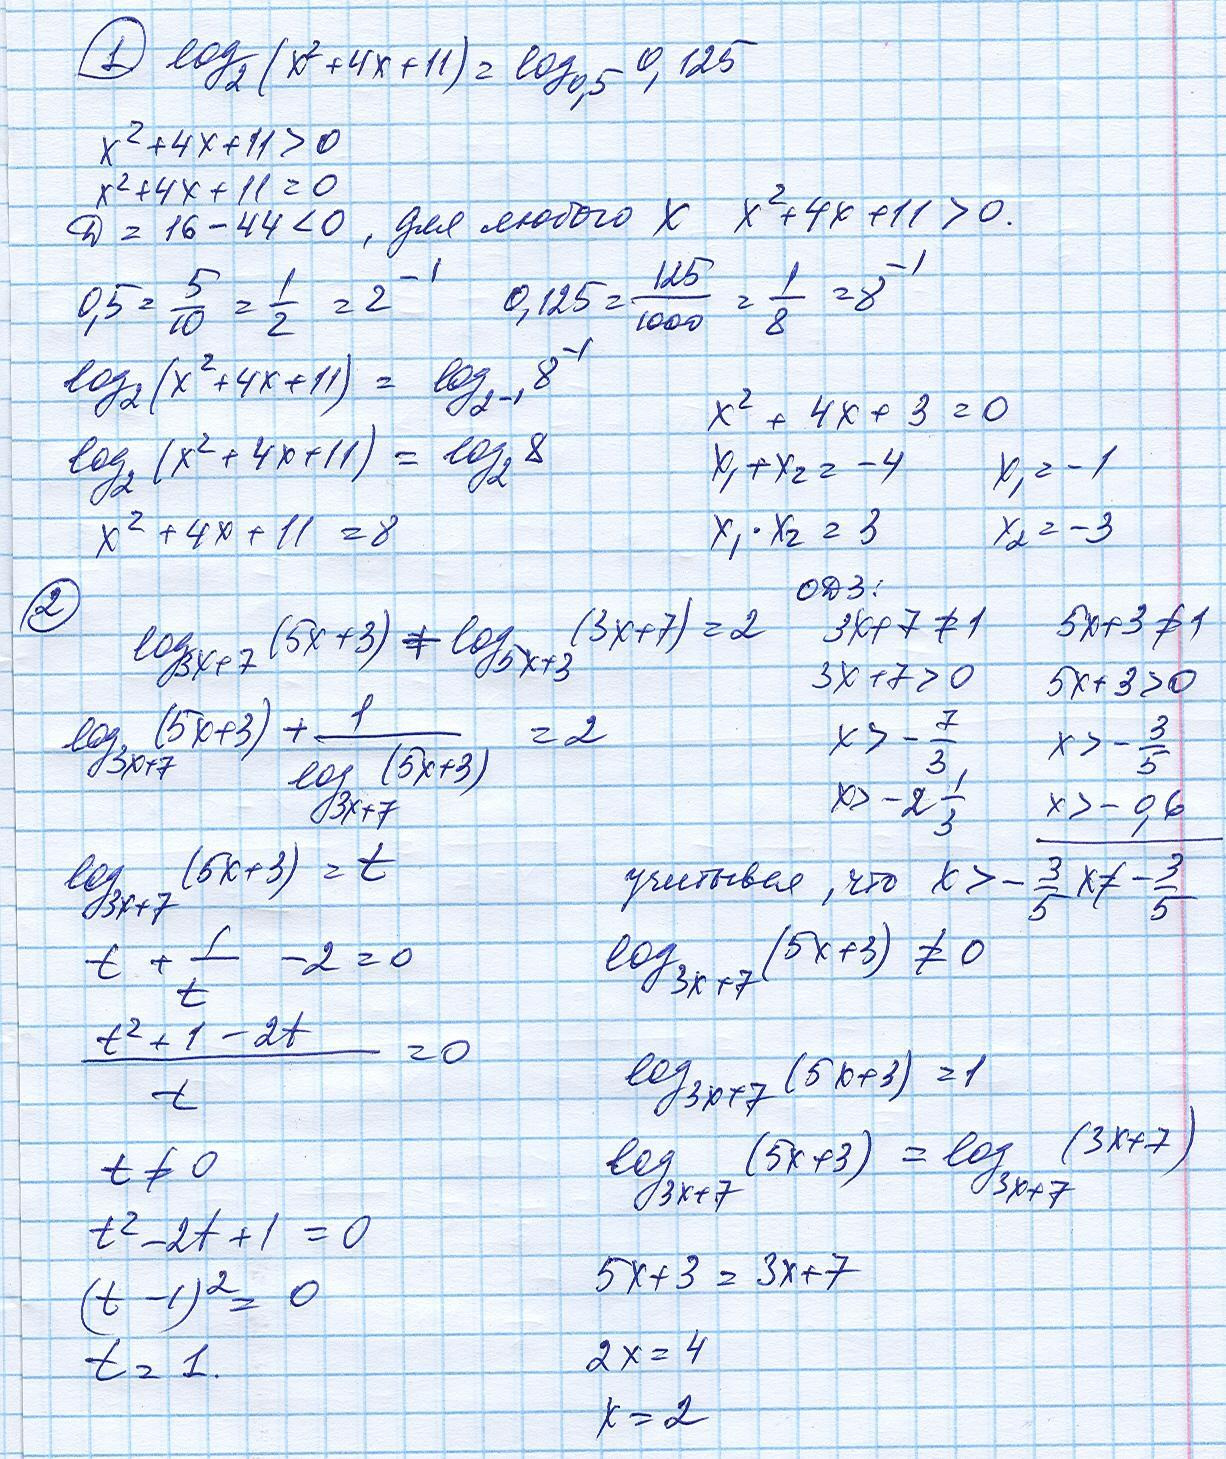 1 log₂(x²+4x+11) = log₀,₅ 0,125
x²+4x+11>0
x²+4x+11=0
D = 16-44<0, для любого x x²+4x+11>0.
0,5 = 5/10 = 1/2 = 2⁻¹ 0,125 = 125/1000 = 1/8 = 8⁻¹
log₂(x²+4x+11) = log₂₋₁ 8⁻¹
log₂(x²+4x+11) = log₂ 8
x²+4x+11 = 8
x²+4x+3=0
x₁+x₂=-4 x₁=-1
x₁·x₂=3 x₂=-3
2
log₃ₓ₊₇(5x+3) + log₅ₓ₊₃(3x+7) = 2
ОДЗ:
3x+7≠1 5x+3≠1
3x+7>0 5x+3>0
x>-7/3 x>-3/5
x>-2 1/3 x>-0,6
log₃ₓ₊₇(5x+3) + 1/log₃ₓ₊₇(5x+3) = 2
log₃ₓ₊₇(5x+3) = t
t + 1/t -2=0
(t²+1-2t)/t = 0
t≠0
t²-2t+1=0
(t-1)²=0
t=1.
учитывая, что x>-3/5 x≠-3/5
log₃ₓ₊₇(5x+3) ≠ 0
log₃ₓ₊₇(5x+3) = 1
log₃ₓ₊₇(5x+3) = log₃ₓ₊₇(3x+7)
5x+3 = 3x+7
2x=4
x=2